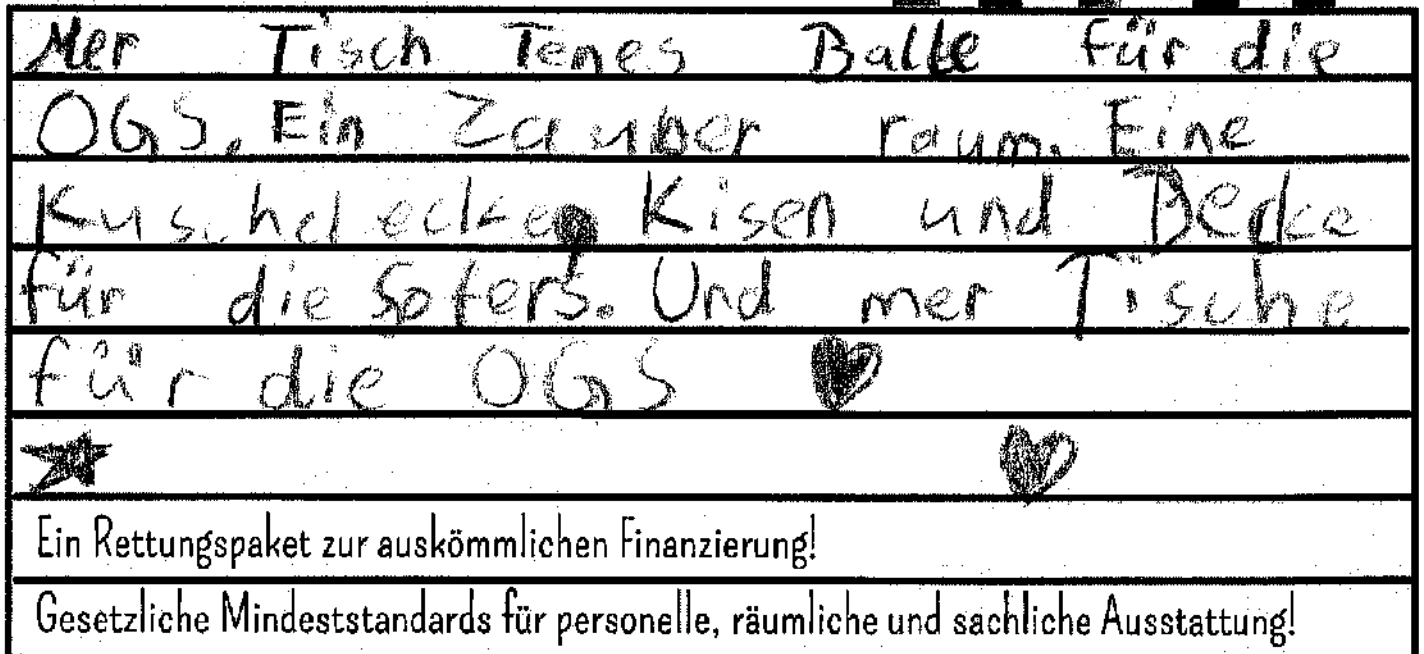 Mer Tisch Tenes Balle für die
OGS. Ein Zauber raum. Eine
Kuschelecke Kisen und Decke
für die Sofers. Und mer Tische
für die OGS
Ein Rettungspaket zur auskömmlichen Finanzierung!
Gesetzliche Mindeststandards für personelle, räumliche und sachliche Ausstattung!